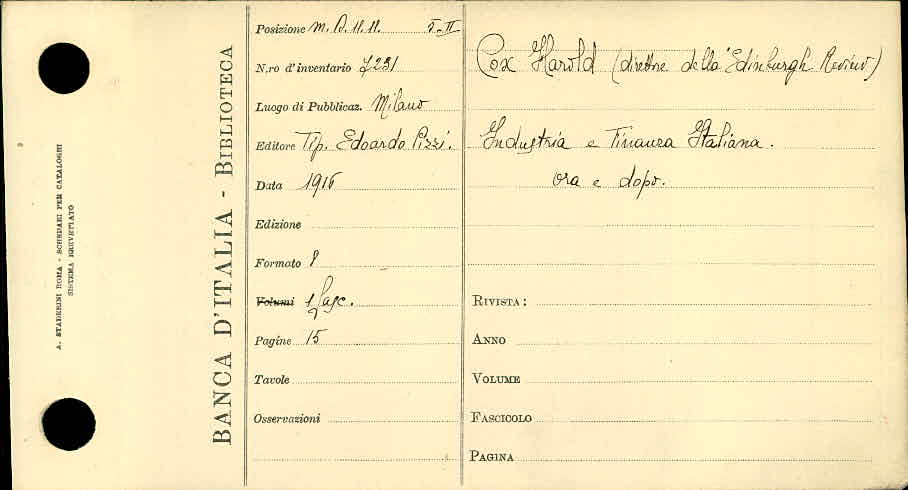 A. STADERINI ROMA - SCHEDARI PER CATALOGHI
SISTEMA BREVETTATO
BANCA D'ITALIA - BIBLIOTECA
Posizione M. D. 11.11. 5-II
N.ro d'inventario 7231
Luogo di Pubblicaz. Milano
Editore Tip. Edoardo Pizzi.
Data 1916
Edizione
Formato 8
Volumi 1 fasc.
Pagine 15
Tavole
Osservazioni
Cox Harold (direttore della Edinburgh Review)
Industria e Finanza Italiana.
ora e dopo.
RIVISTA:
ANNO
VOLUME
FASCICOLO
PAGINA